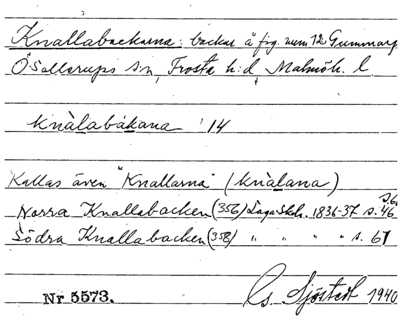 Knallabackarna: backar å fig. num 12 Gummarp
Ö. Sallerups sn, Frosta h:d, Malmöh. l
knàlabákana '14
Kallas även "Knallarna" (knàlana)
Norra Knallabacken (356) Laga Skh. 1836-37 s. 46
Södra Knallabacken (358) " " " " s. 61
Nr 5573. Gs. Sjöstedt 1940